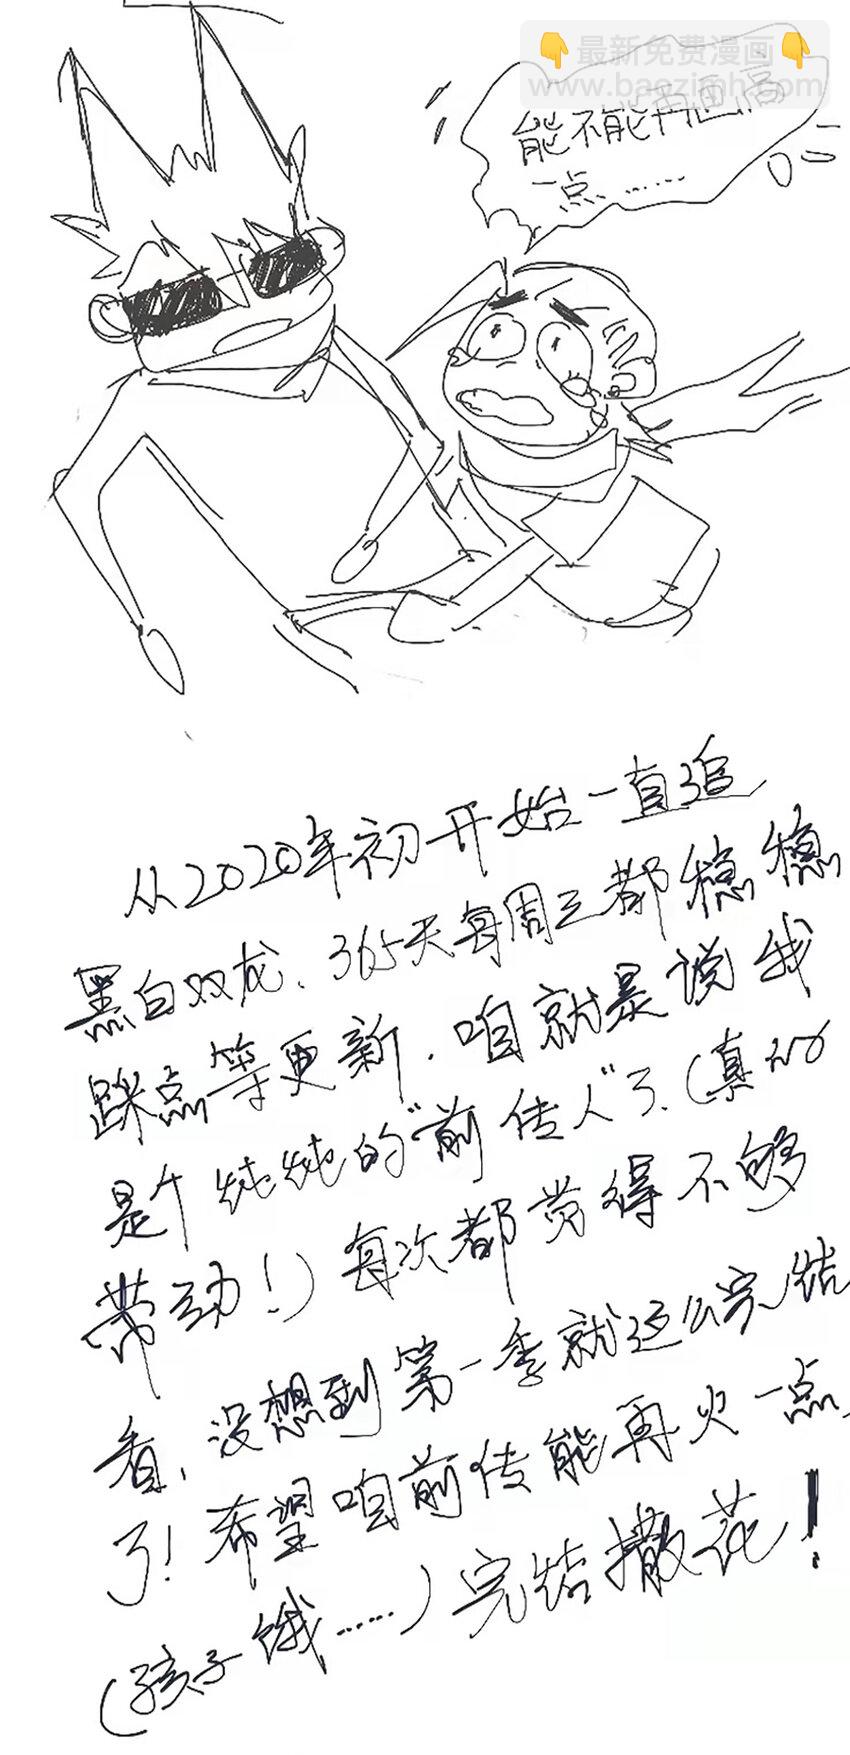 👇最新免费漫画👇
www.baozimh.com
能不能再画高
一点……
从2020年初开始一直追
黑白双龙、365天每周三都稳稳
踩点等更新、咱就是说我
是个纯纯的“前传人”了、(真的
带动!)每次都觉得不够
看、没想到第一季就这么完结
了!希望咱前传能再火一点
(孩子饿……)完结撒花!